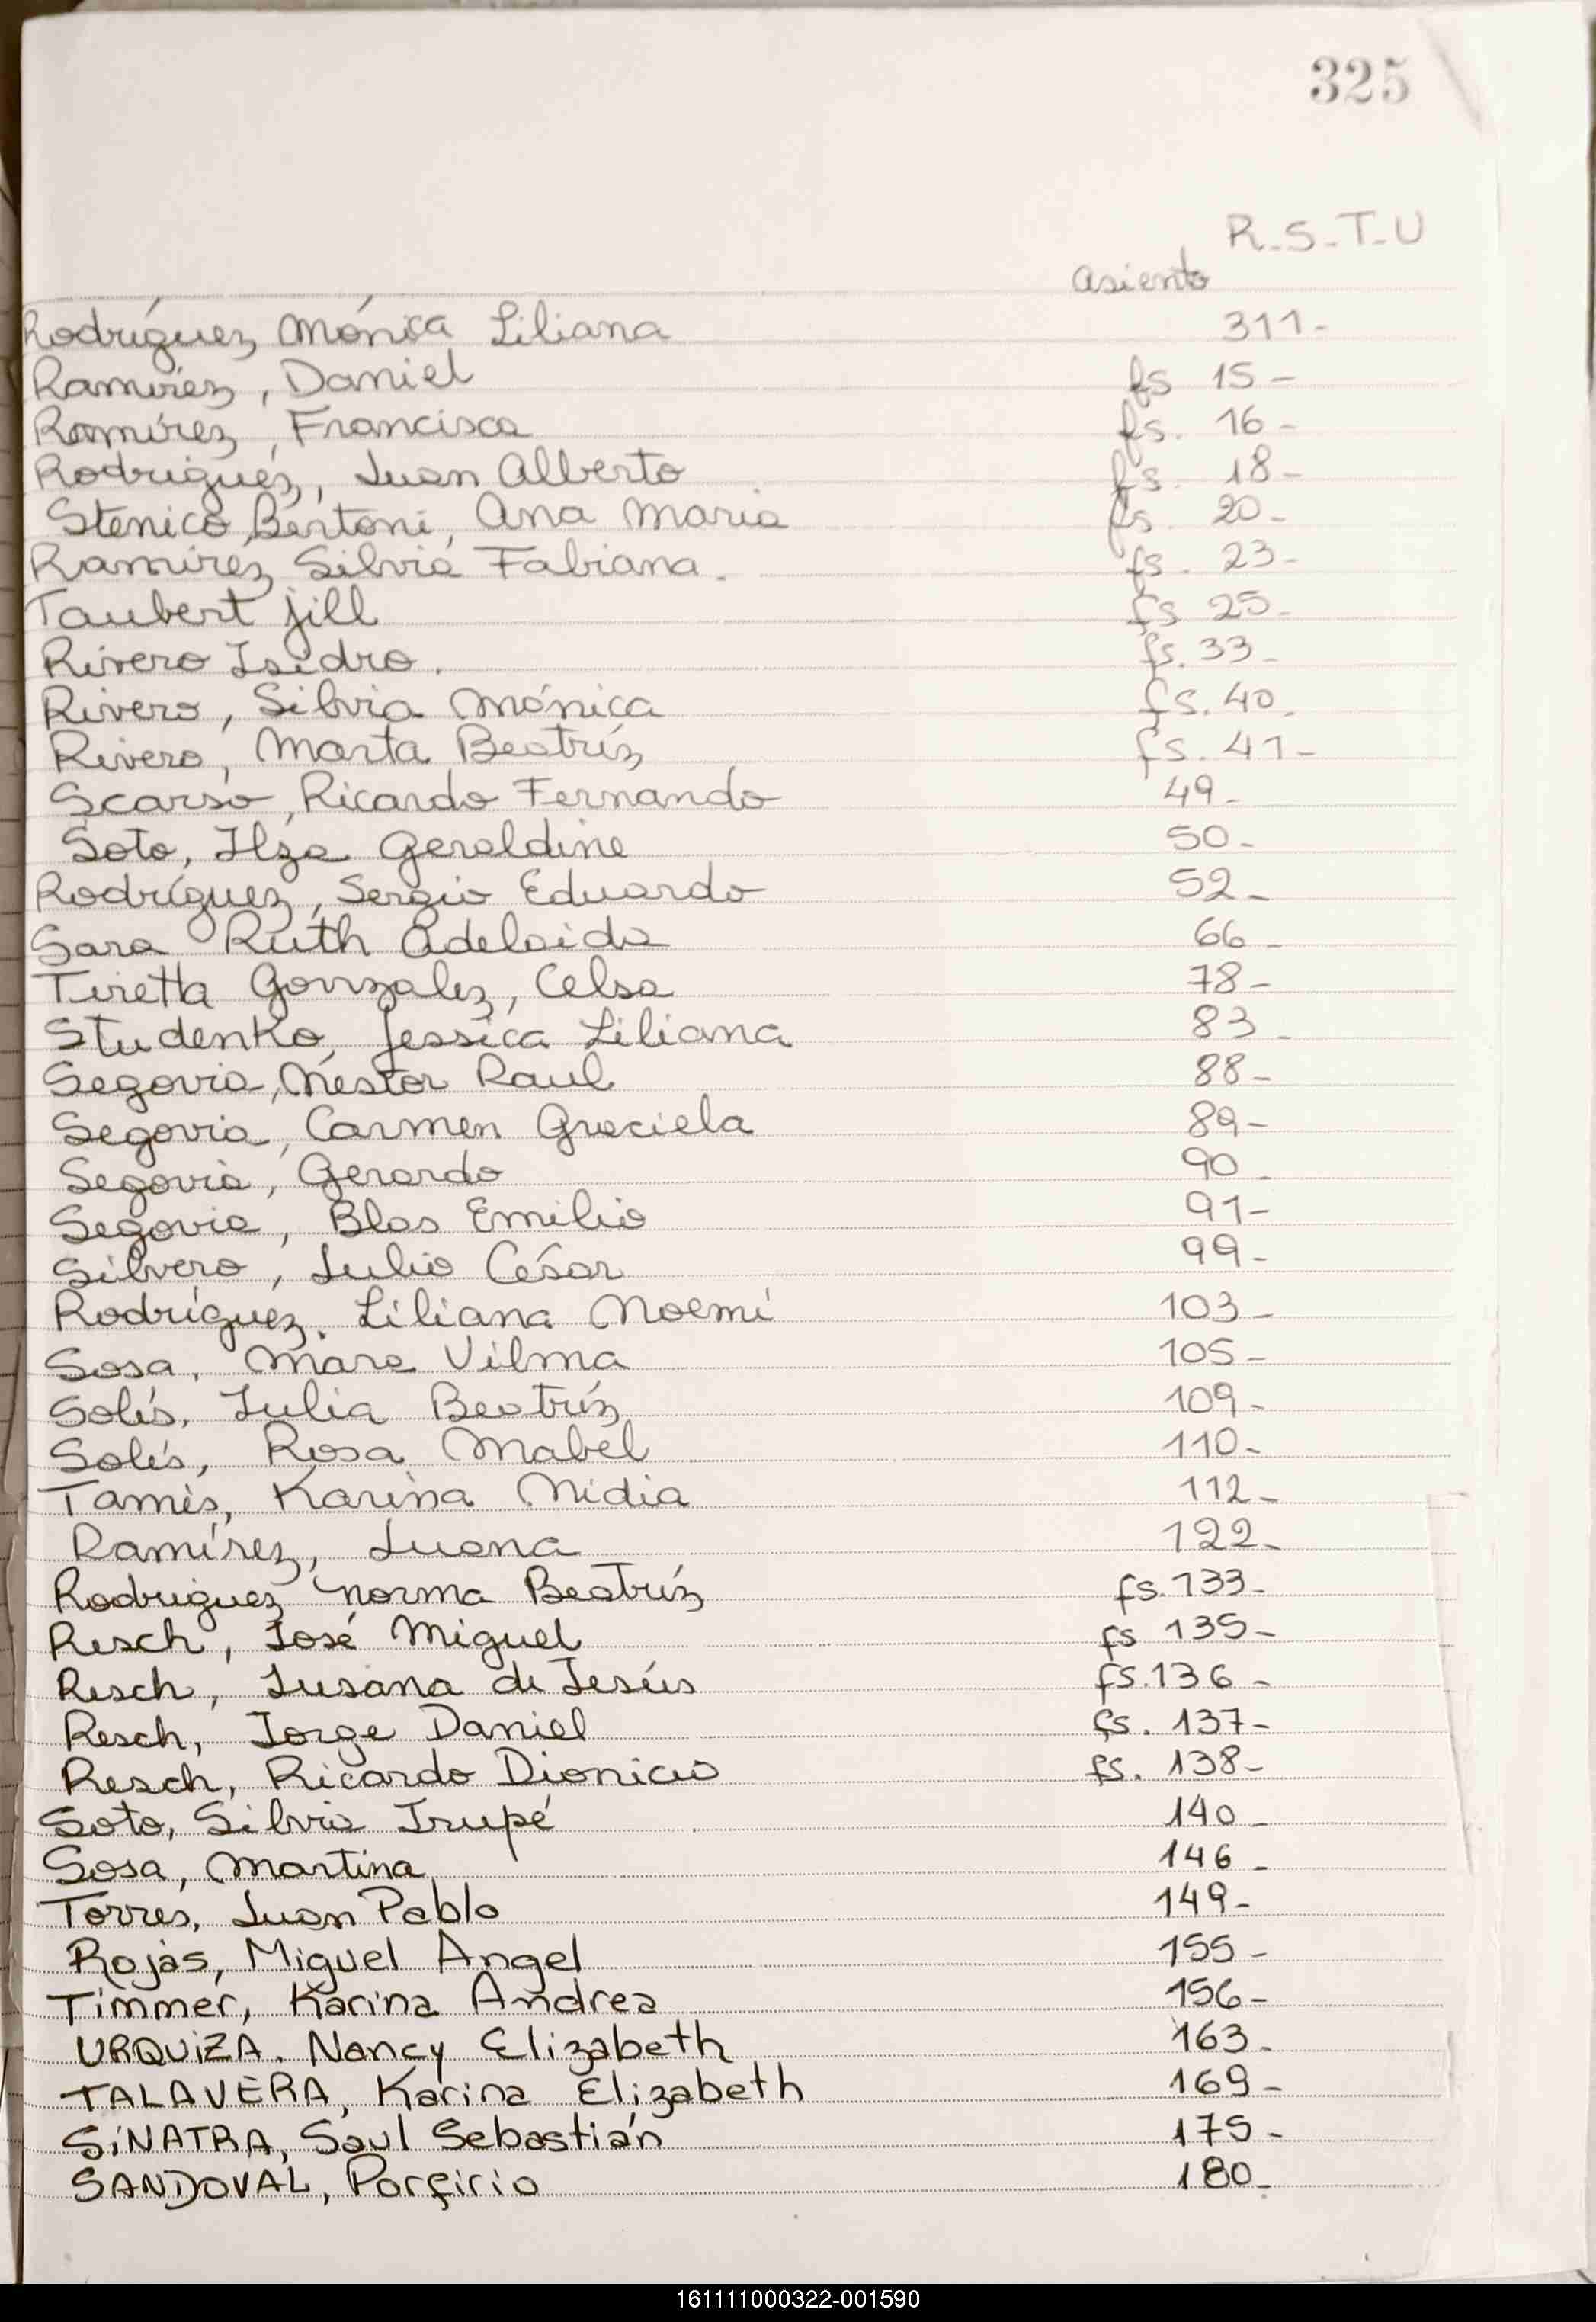 325
R-S-T-U
asiento
Rodríguez Mónica Liliana 311-
Ramirez, Daniel fs 15-
Ramírez, Francisca fs. 16-
Rodriguez, Juan Alberto fs. 18-
Stenico Bertoni, Ana Maria fs. 20-
Ramirez Silvia Fabiana. fs. 23-
Taubert Jill fs 25-
Rivero Isidro. fs. 33-
Rivero, Silvia Mónica fs. 40.
Rivero, Marta Beatríz fs. 41-
Scarso, Ricardo Fernando 49-
Soto, Ilza Geraldine 50-
Rodríguez, Sergio Eduardo 52-
Sara Ruth Adelaida 66-
Tiretta Gonzalez, Celsa 78-
Studenko, Jessica Liliana 83-
Segovia, Nestor Raul 88-
Segovia, Carmen Graciela 89-
Segovia, Gerardo 90-
Segovia, Blas Emilio 91-
Silvero, Julio César 99-
Rodríguez. Liliana Noemí 103-
Sosa, Mara Vilma 105-
Solís, Julia Beatríz 109-
Solís, Rosa Mabel 110-
Tamis, Karina Nidia 112-
Ramírez, Juana 122-
Rodriguez Norma Beatríz fs. 133-
Resch, José Miguel fs 135-
Resch, Susana de Jesús fs. 136-
Resch, Jorge Daniel fs. 137-
Resch, Ricardo Dionicio fs. 138-
Soto, Silvia Irupé 140-
Sosa, Martina 146-
Torres, Juan Pablo 149-
Rojas, Miguel Angel 155-
Timmer, Karina Andrea 156-
URQUIZA. Nancy Elizabeth 163-
TALAVERA, Karina Elizabeth 169-
SINATRA, Saul Sebastián 175-
SANDOVAL, Porfirio 180-
161111000322-001590